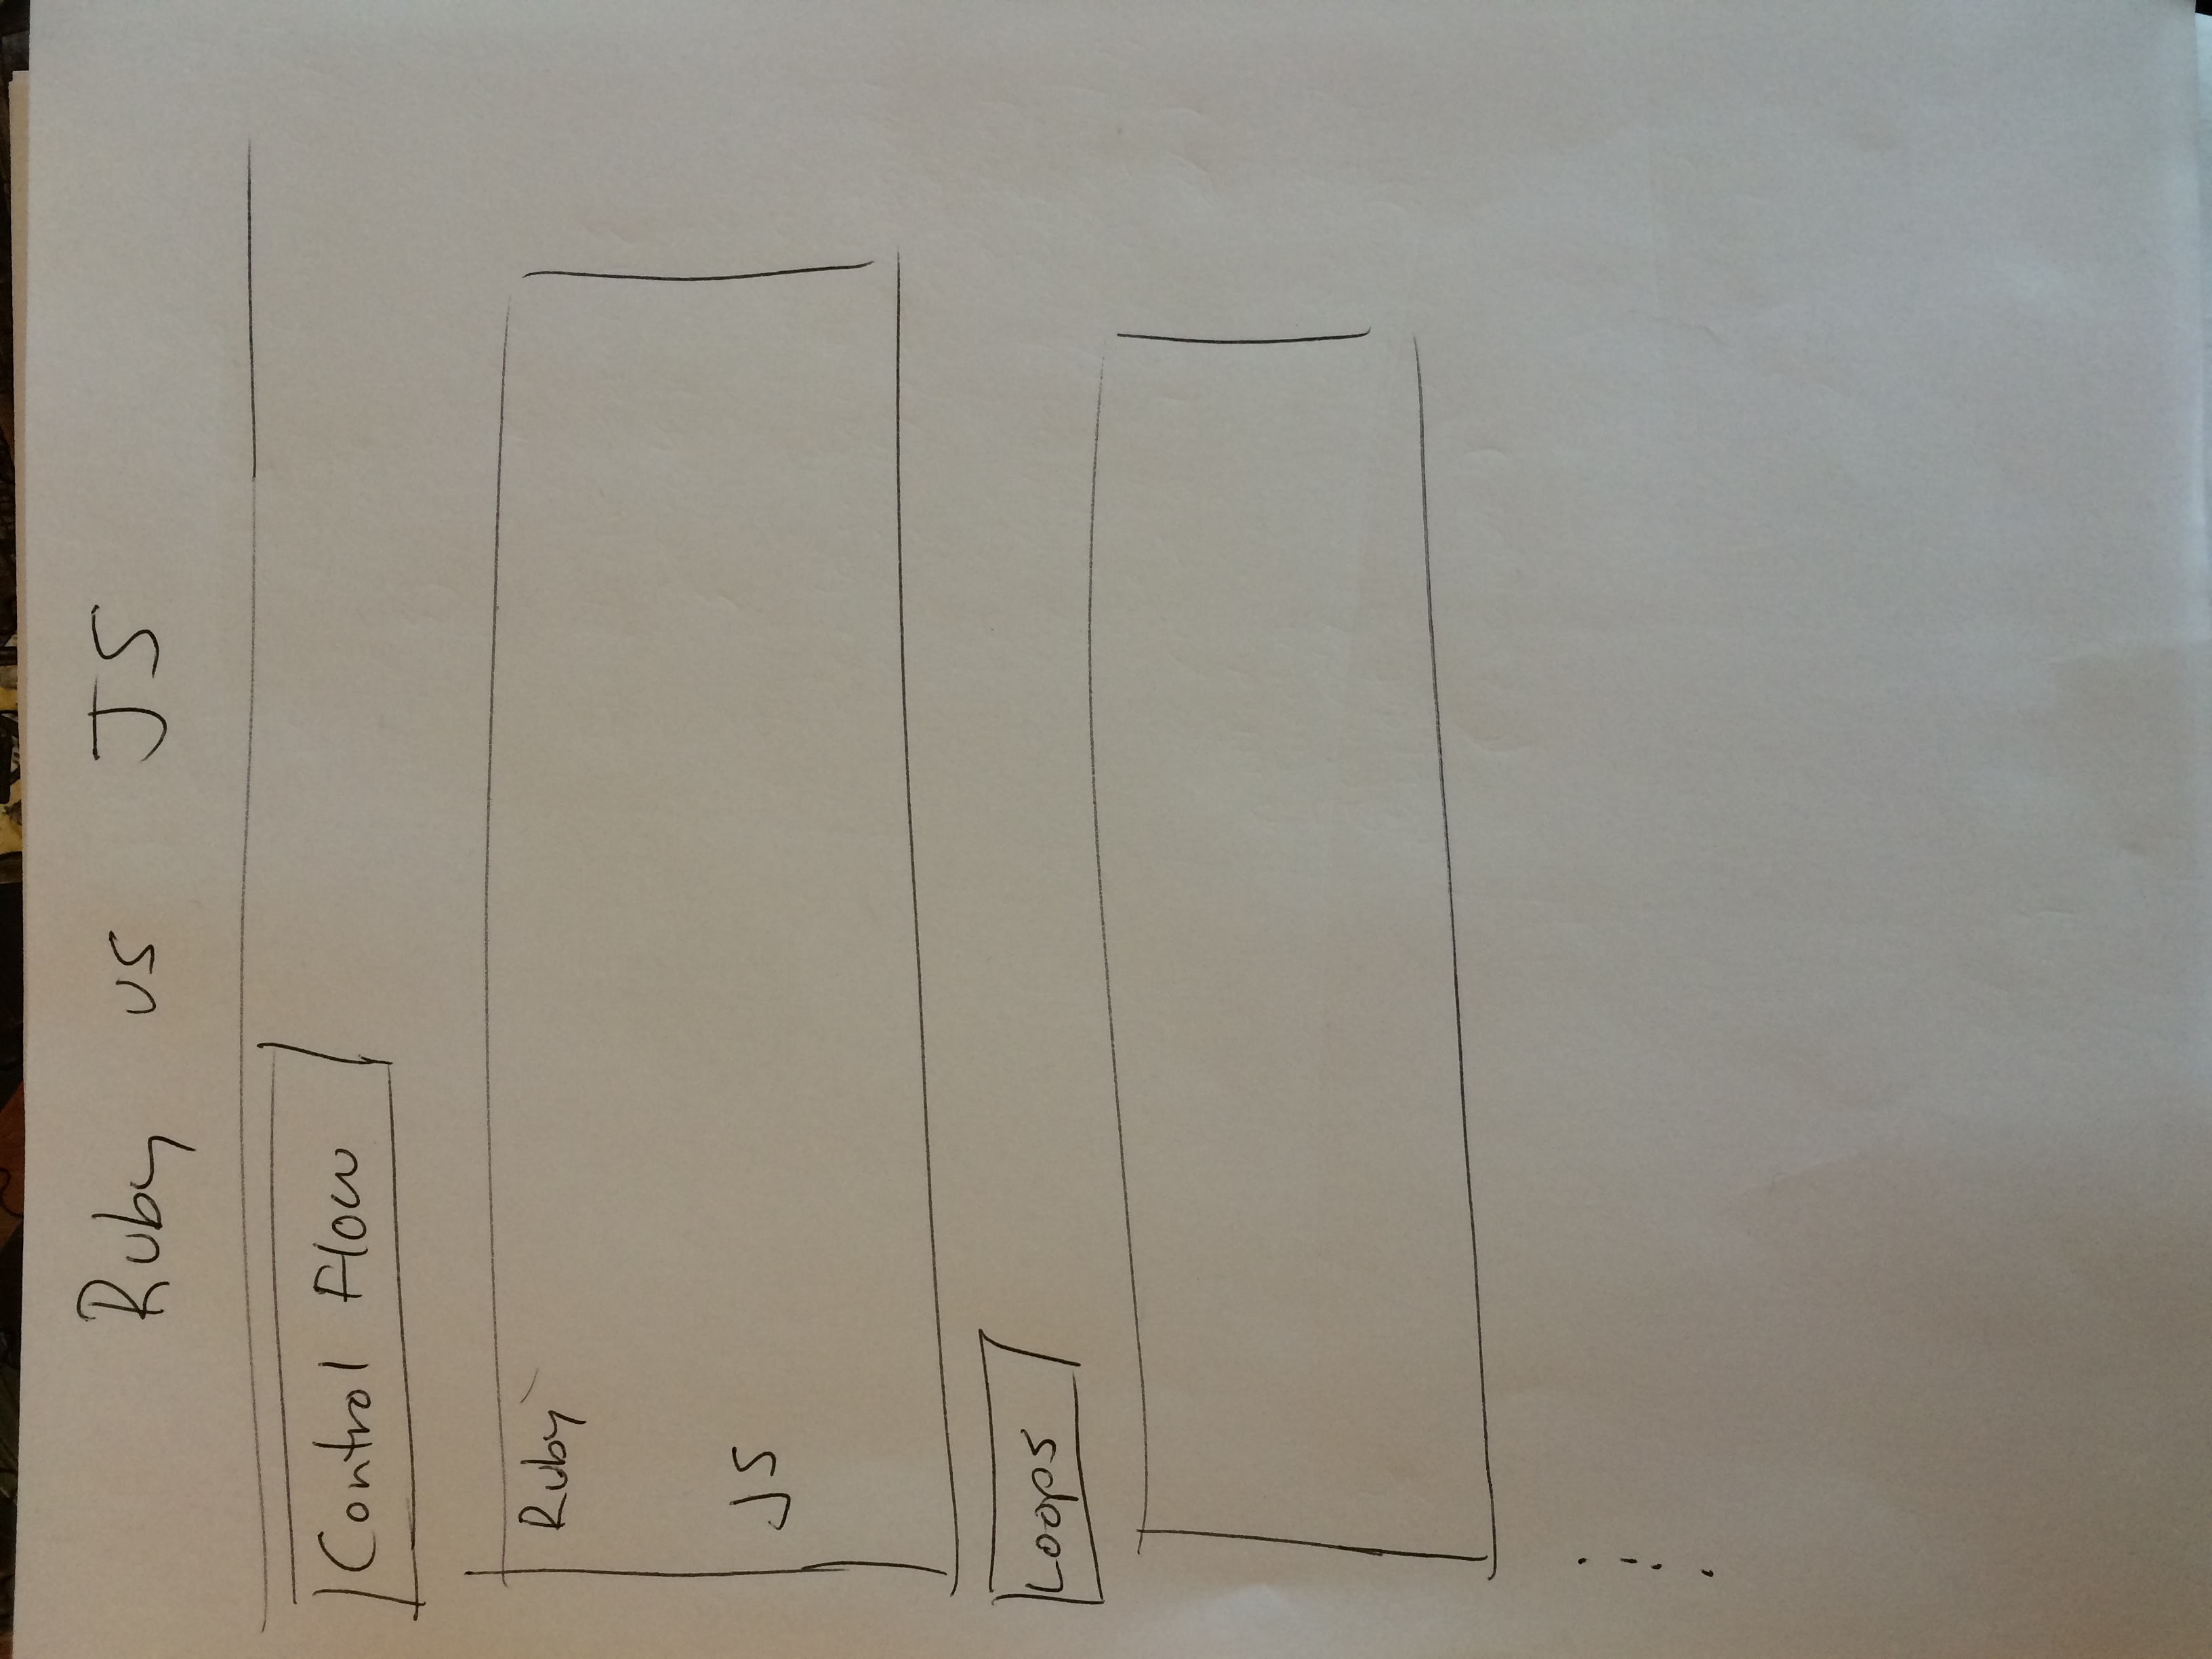 Ruby vs JS
Control Flow
Ruby
JS
Loops